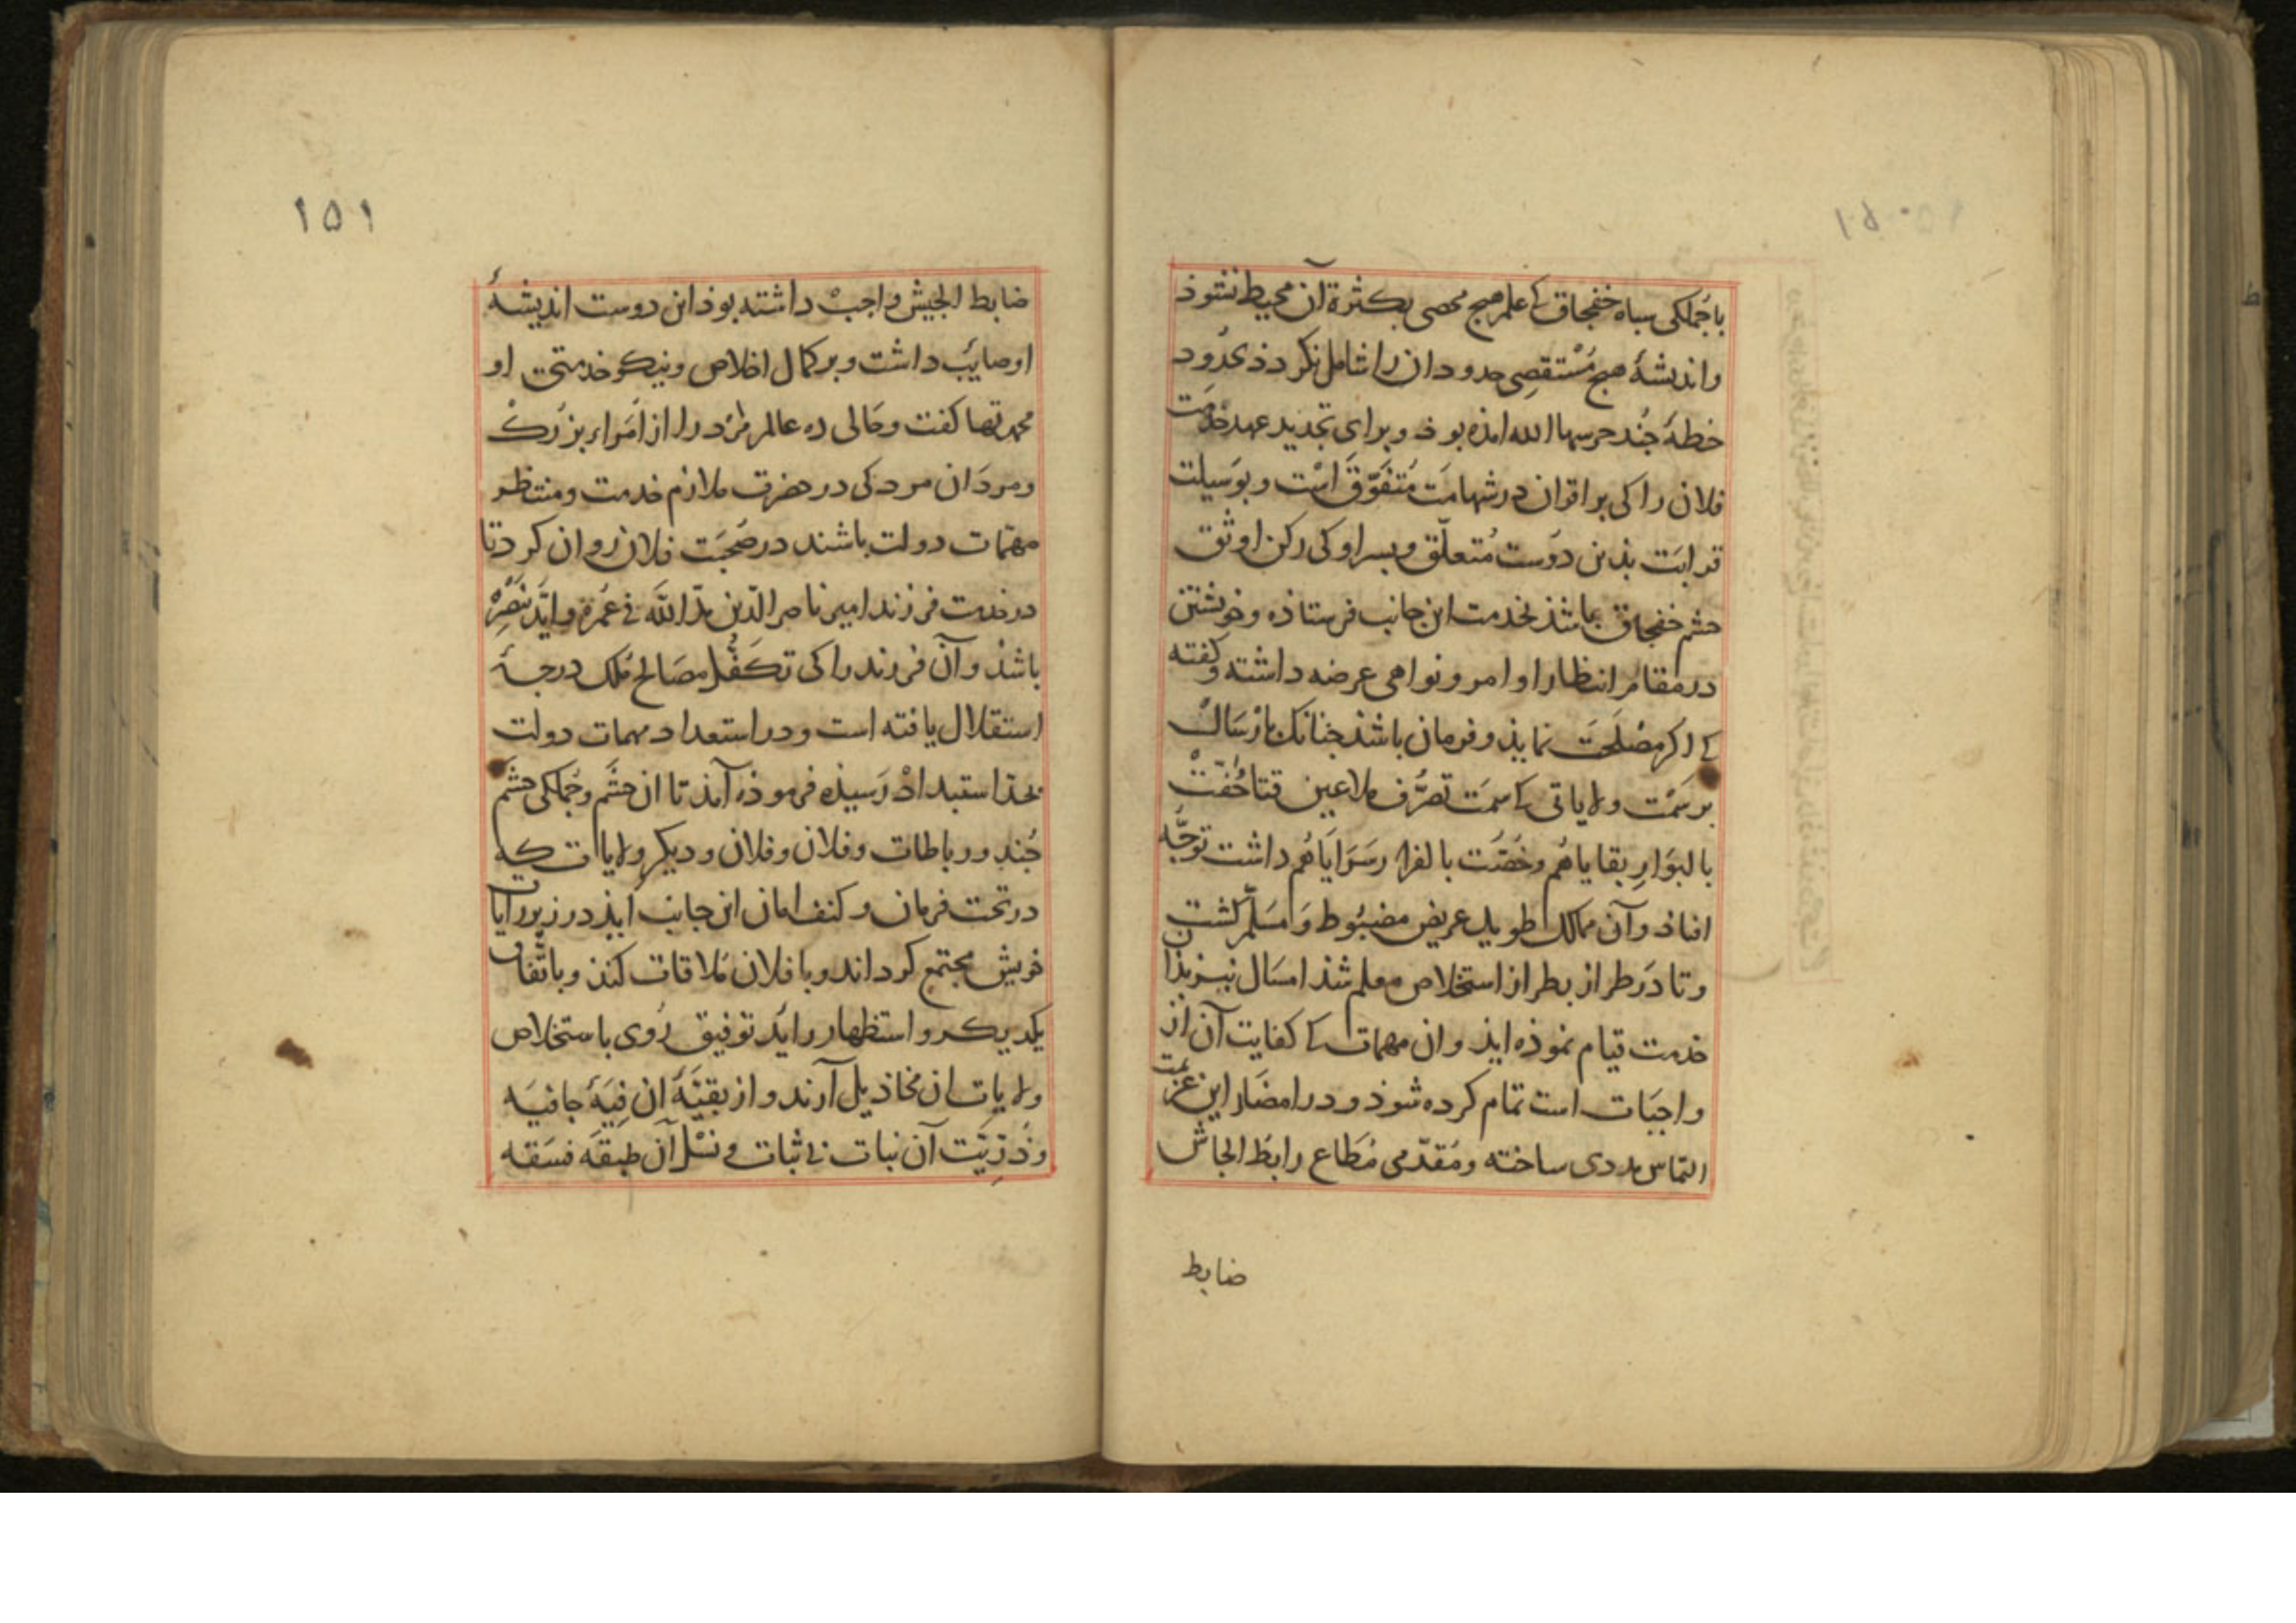 ۱۵۰
باجُملکی سباه خفجاق کے علم هیچ محصی بکثرة آن محیط نشوذ
واندیشۀ هیچ مُسْتقصِی حدود ان را شامل نکردذ بحُدود
خطۀ جَند حرسها الله امذه بوذ وبرای تجدید عهد خدمت
فلان را کی بر اقران در شهامَت مُتفَوّق اسْت وبوَسیلت
قرابَت بذین دوَست مُتعلّق وبسر او کی رکن اوثق
حشم خفجاق باشذ بخدمت این جانب فرستاذه وخویشتن
در مقام انتظار اوامر ونواهی عرضه داشته وکفته
کے اکر مصْلحَت نمایذ وفرمان باشذ جنانک بارْسَال
بر سَمْت ولایاتی کے سمَت تصرّف ملاعین قتا حُفّتْ
بالبوَارِ بقایاهُم وخُصّت بالفرار سَرَایَاهُم داشت توجّه
افتاذ وآن ممالک طویل عریض مضبُوط وَمسَلّم کشت
وتا دَر طراز بطراز استخلاص معلم شذ امسَال نیز بذان
خدمت قیام نموذه ایذ وان مهمات کے کفایت آن از
واجبَات است تمام کرده شوذ ودر امضَاء این عزیمت
التماس مددی ساخته ومُقدّمی مُطَاع رابط الجاش
ضابط
۱۵۱
ضابط الجیش واجبْ داشته بوذ این دوست اندیشۀ
او صایَب داشت وبر کمال اخلاص ونیکو خدمتی او
محمدتها کفت وحَالی ده عالم مرْد را از اُمَراء بزرک
ومردَان مرد کی در حضرت ملازم خدمت ومنتظر
مهمّات دولت باشند در صُحبَت فلان روان کرد تا
در خدمت فرزند امیر ناصر الدّین مدّ الله فی عُمرهِ وایّدَ بنَصْرِهِ
باشذ وآن فرزند را کی تکفّل مصَالح مُلک درجۀ
استقلال یافته است ودر استعداد مهمات دولت
بحذ استبدادْ رَسیذه فرموذه آمذ تا ان حشَم وجُملکی حشَم
جُند ورباطات وفلان وفلان ودیکر ولایات که
در تحت فرمان وکنف امان این جانب ایذ در زیر رایات
خویش مجتمع کرداند وبا فلان مُلاقات کنذ وباتّفاق
یکدیکر واستظهار رایَد توفیق رُوی باستخلاص
ولایات ان مخاذیل آرند واز بقیّۀ ان فِیَۀ جافیَه
وذُرّیَت آن نبات بی ثبات ونسْل آن طبقَه فسَقه